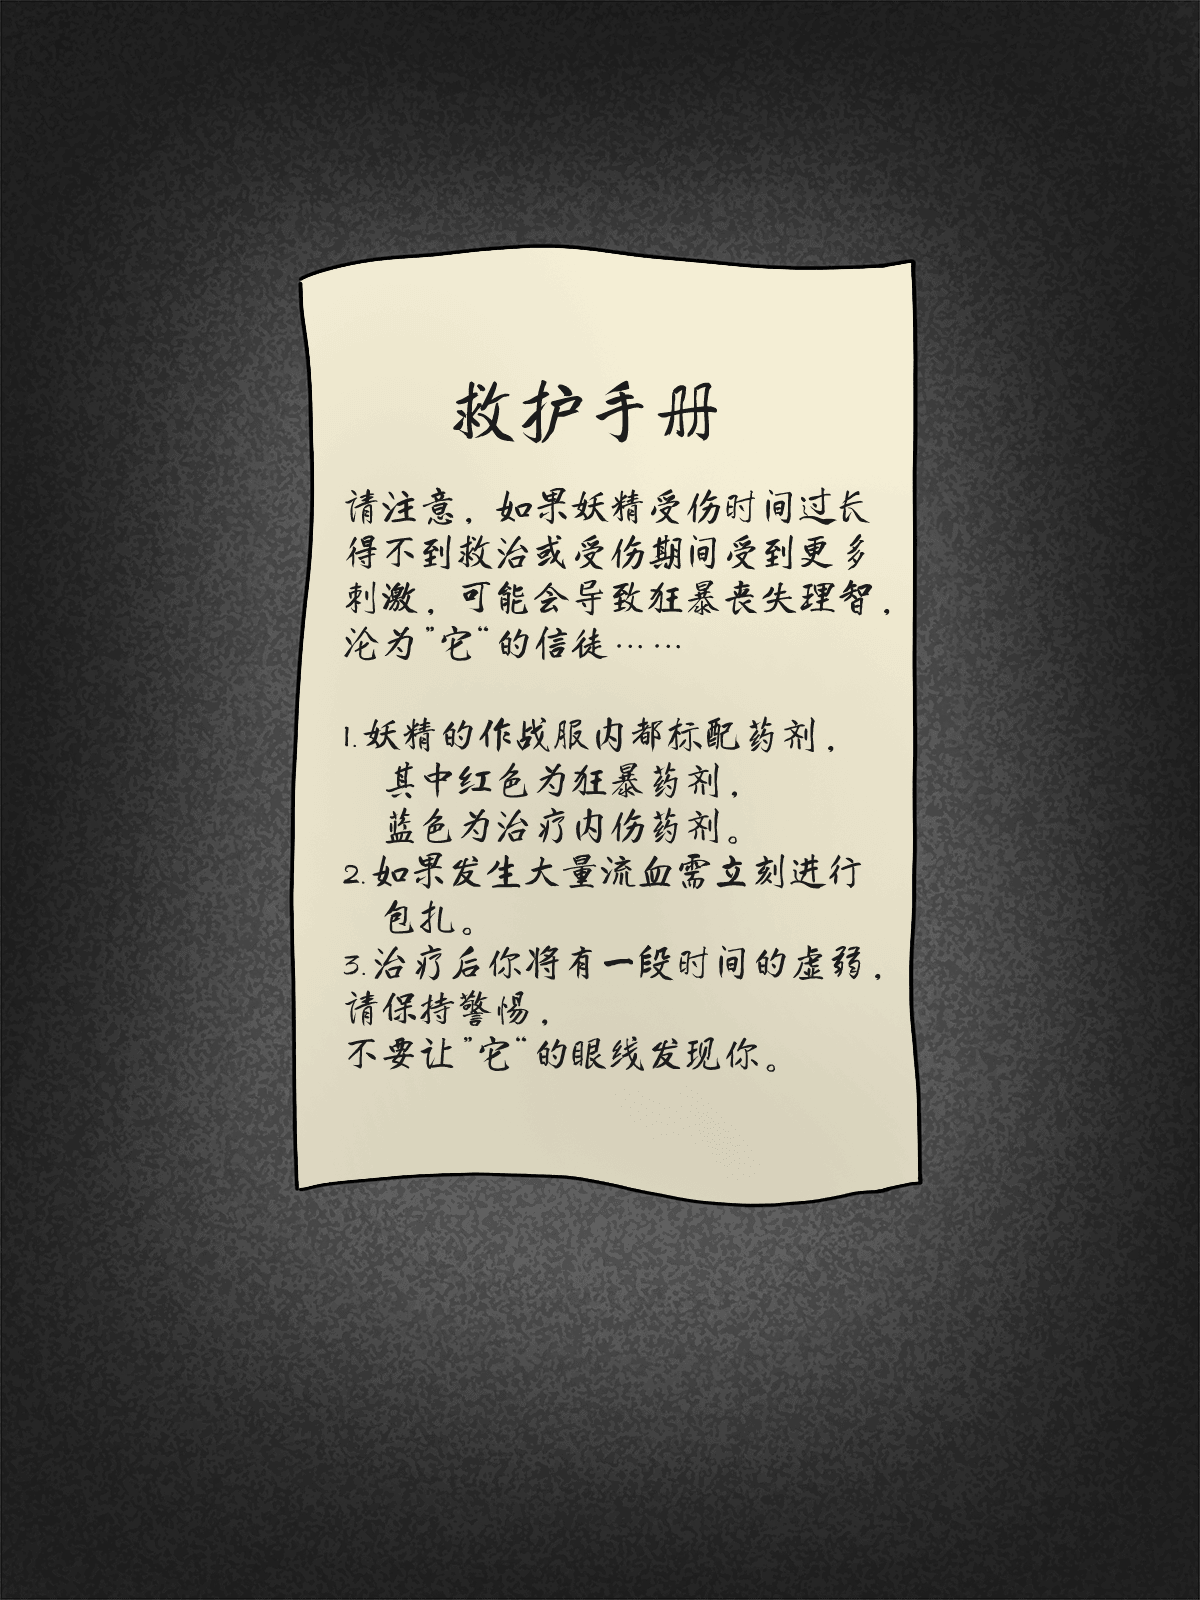 救护手册
请注意，如果妖精受伤时间过长
得不到救治或受伤期间受到更多
刺激，可能会导致狂暴丧失理智，
沦为”它“的信徒……
1.妖精的作战服内都标配药剂，
其中红色为狂暴药剂，
蓝色为治疗内伤药剂。
2.如果发生大量流血需立刻进行
包扎。
3.治疗后你将有一段时间的虚弱，
请保持警惕，
不要让”它“的眼线发现你。